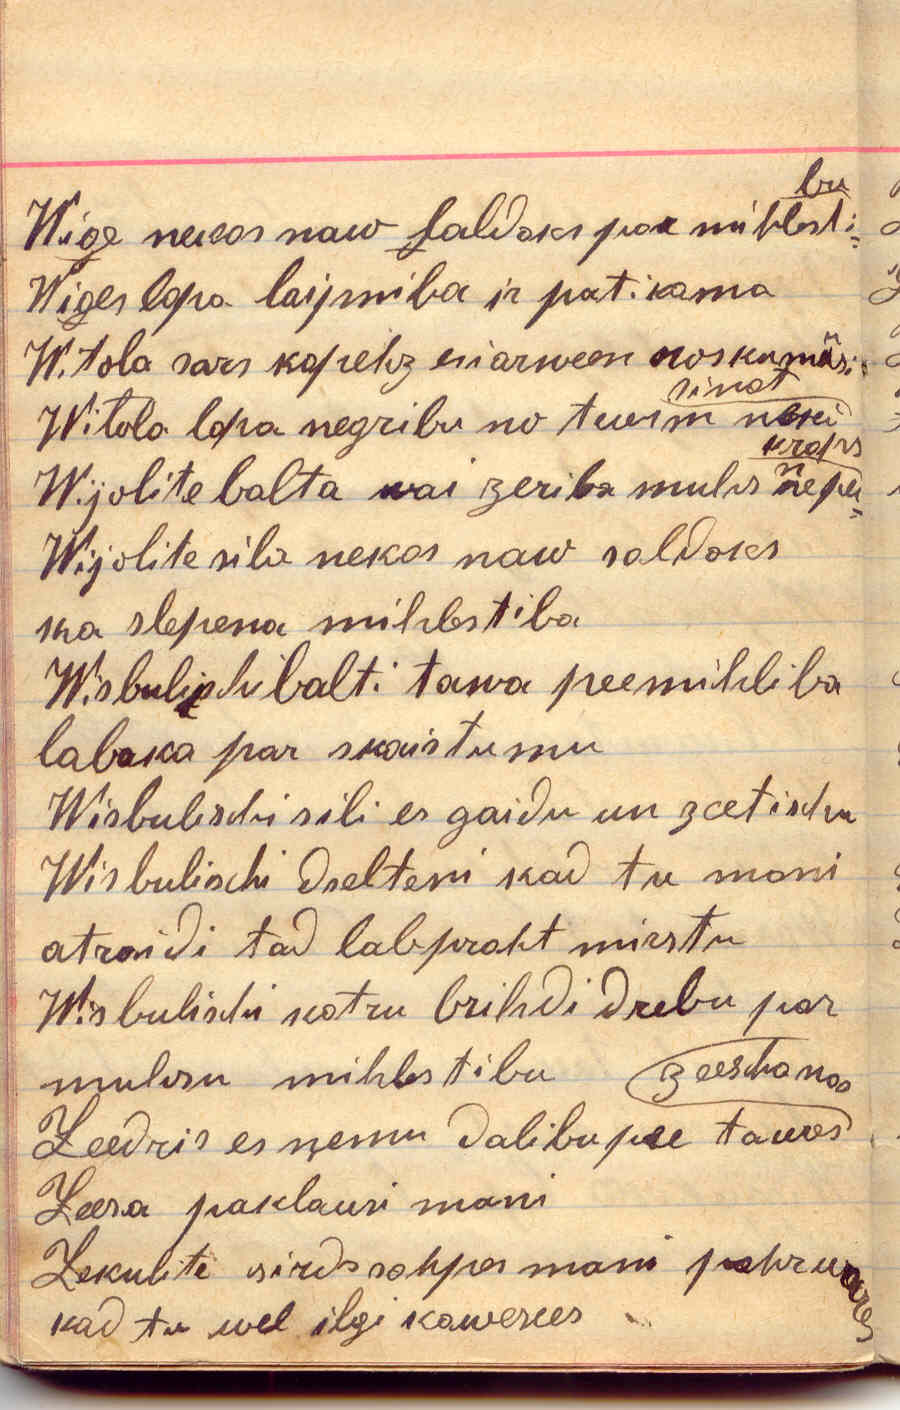 Wige nekas naw saldaks par mihlesti=
bu
Wiges lapa laipniba ir patikama
Witola sars kapehz eniarween noskumäsi
Witola lapa negribu no tewim neka
sinat
Wijolite balta wai zeriba muhs nepee=
kraps
Wijolite sila nekas naw saldaks
ka slepena mihlestiba
Wisbulischi balti tawa peemihliba
labaka par skaistumu
Wisbulischi sili es gaidu un zeetischu
Wisbulischi dselteni kad tu mani
atraidi tad labpraht mirstu
Wisbulischi katru brihdi drebu par
muhsu mihlestibu zeeschanas
Zeedris es ņemu dalibu pee tawas
Zeera paklausi mani
Zekulite sirds sahpes mani pahrwares
kad tu wel ilgi kawesees